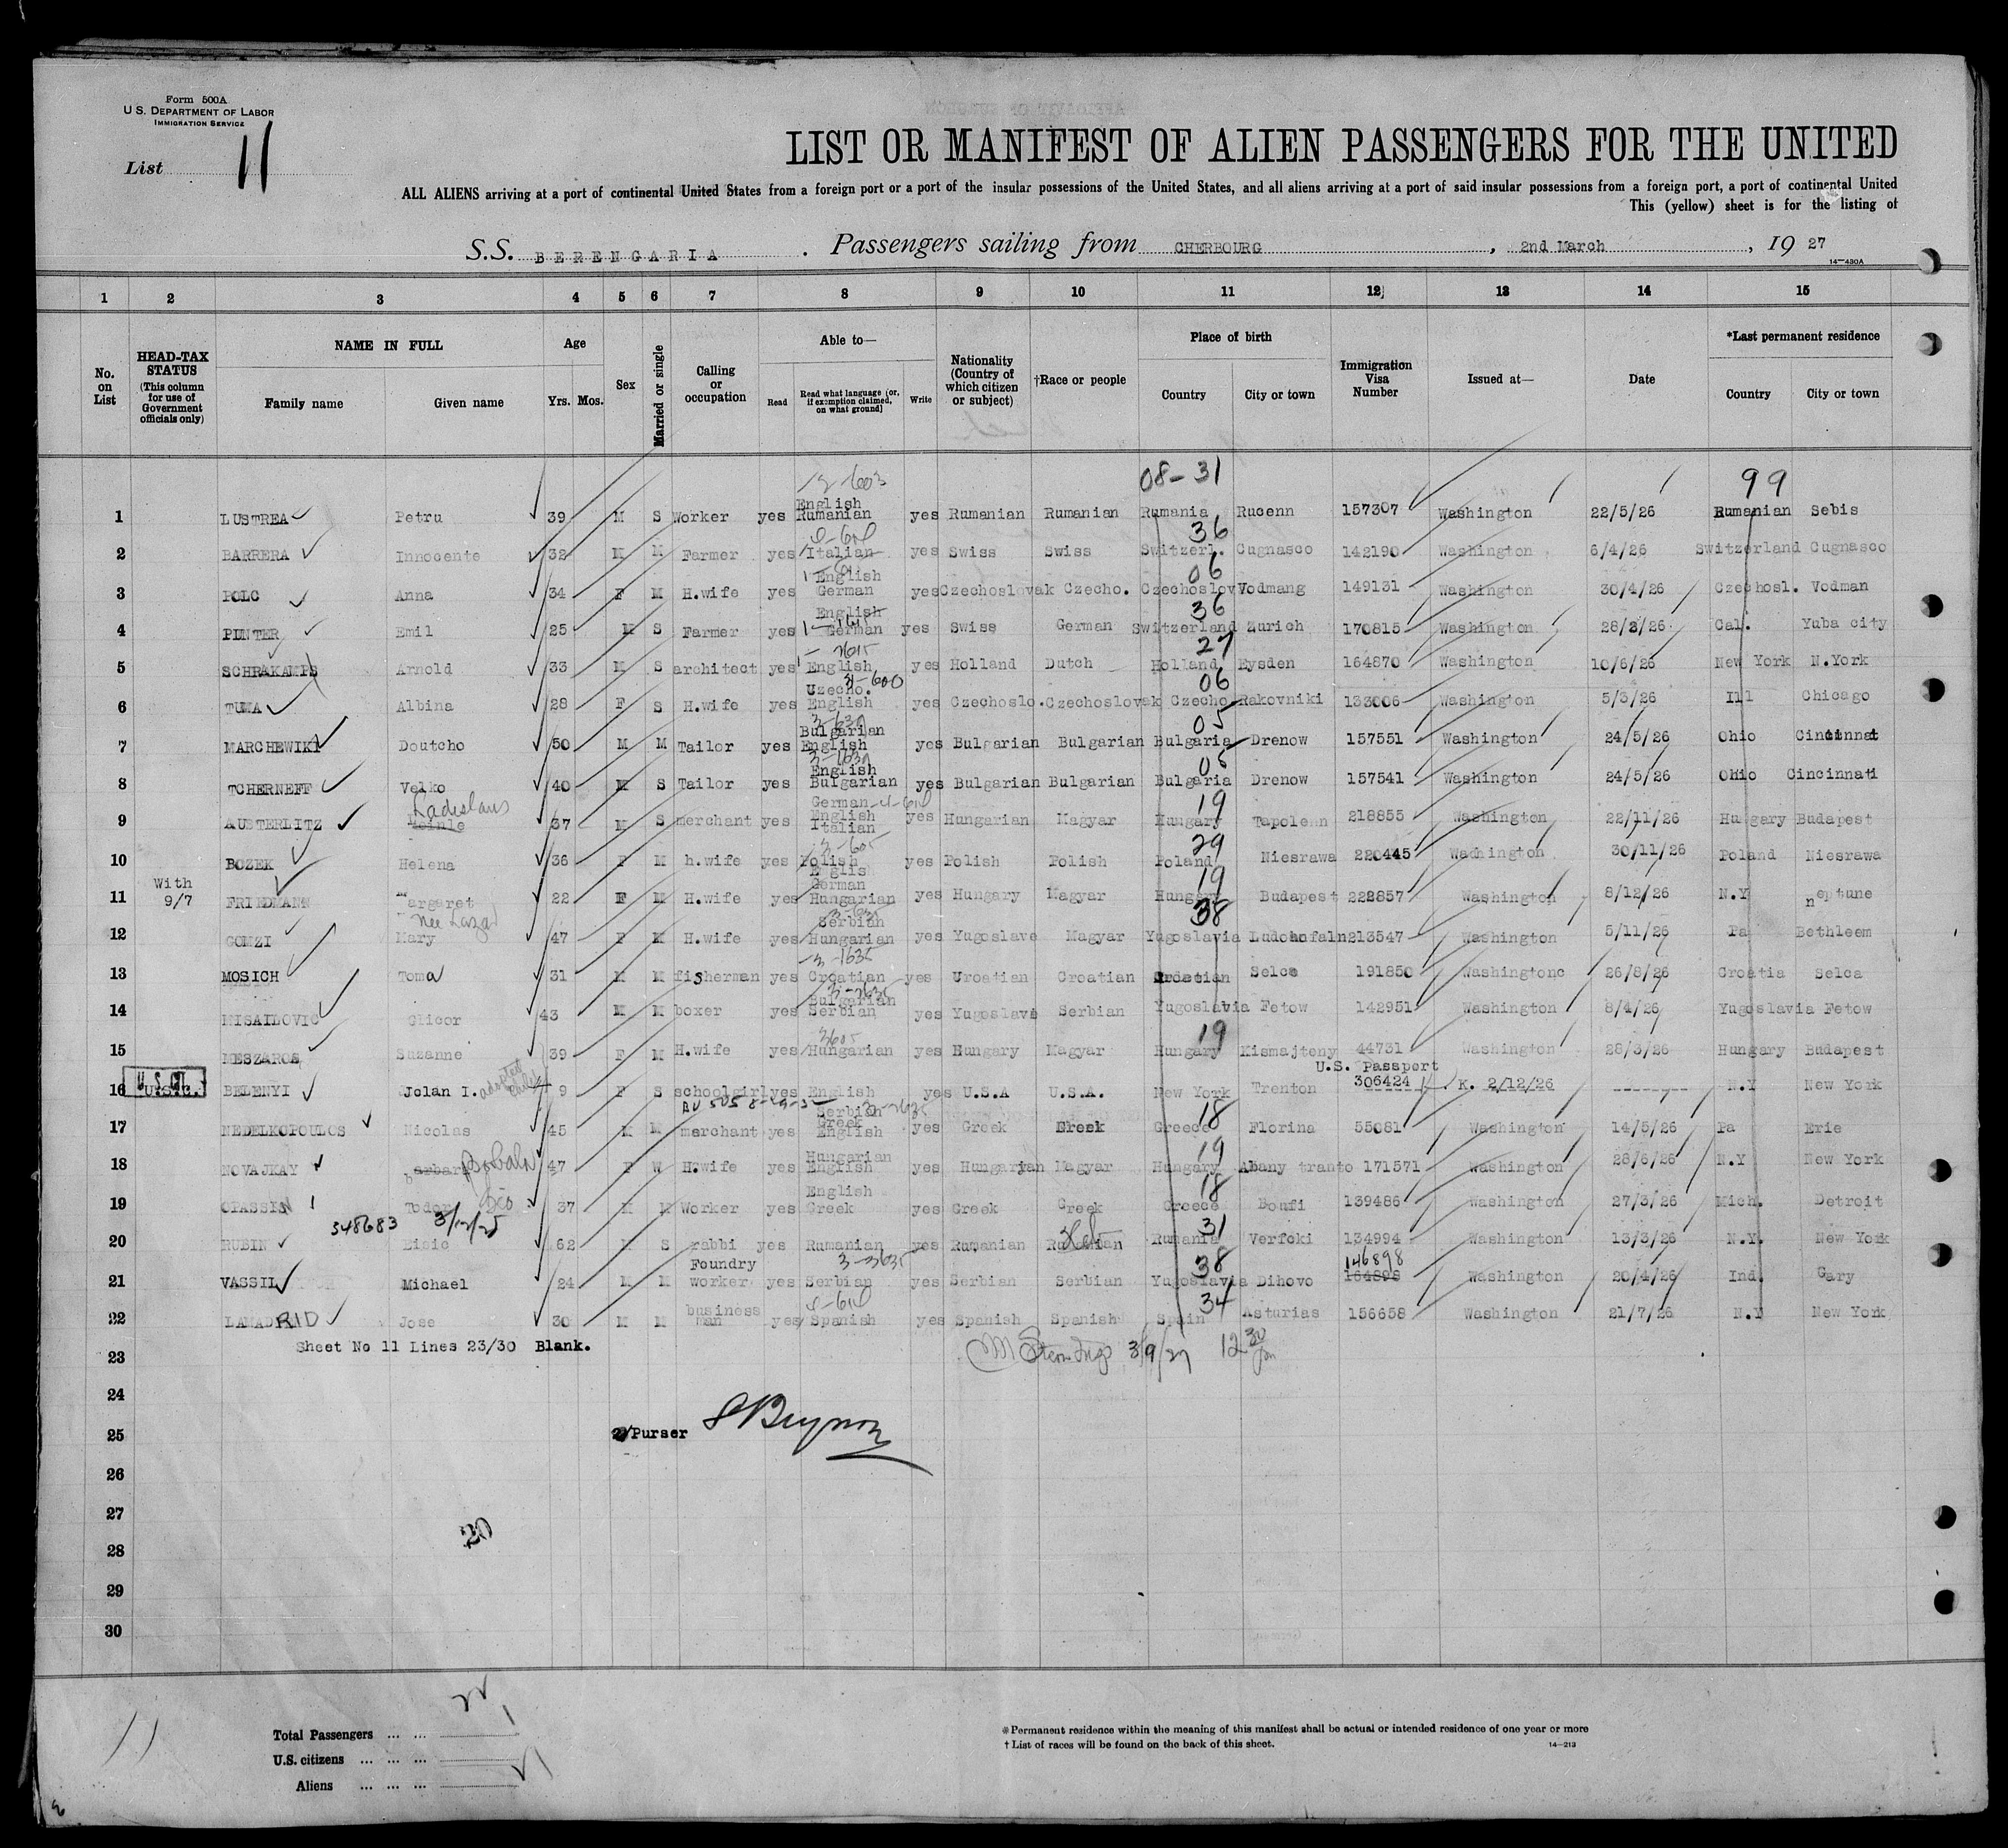 Form 500A
U.S. DEPARTMENT OF LABOR
IMMIGRATION SERVICE
List 11
LIST OR MANIFEST OF ALIEN PASSENGERS FOR THE UNITED
ALL ALIENS arriving at a port of continental United States from a foreign port or a port of the insular possessions of the United States, and all aliens arriving at a port of said insular possessions from a foreign port, a port of continental United
This (yellow) sheet is for the listing of
S.S. BERENGARIA. Passengers sailing from CHERBOURG, 2nd March, 19 27
14—430A
1 2 3 4 5 6 7 8 9 10 11 12 13 14 15
No. on List
HEAD-TAX STATUS (This column for use of Government officials only)
NAME IN FULL
Family name Given name
Age
Yrs. Mos.
Sex
Married or single
Calling or occupation
Able to—
Read Read what language (or, if exemption claimed, on what ground) Write
Nationality (Country of which citizen or subject)
†Race or people
Place of birth
Country City or town
Immigration Visa Number
Issued at—
Date
*Last permanent residence
Country City or town
08-31 99
1 LUSTREA Petru 39 M S Worker yes English Rumanian yes Rumanian Rumanian Rumania Rucenn 157307 Washington 22/5/26 Rumanian Sebis
36
2 BARRERA Innocente 32 M M Farmer yes Italian yes Swiss Swiss Switzerl. Cugnasco 142190 Washington 6/4/26 Switzerland Cugnasco
06
3 POLC Anna 34 F M H.wife yes English German yes Czechoslovak Czecho. Czechoslov Vodmang 149131 Washington 30/4/26 Czechosl. Vodman
36
4 PINTER Emil 25 M S Farmer yes English German yes Swiss German Switzerland Zurich 170815 Washington 28/8/26 Cal. Yuba city
27
5 SCHRAKAMPS Arnold 33 M S architect yes English yes Holland Dutch Holland Eysden 164870 Washington 10/6/26 New York N.York
06
6 TUMA Albina 28 F S H.wife yes Czecho. English yes Czechoslo. Czechoslovak Czecho Rakovniki 133006 Washington 5/3/26 Ill Chicago
05
7 MARCHEWIKI Doutcho 50 M M Tailor yes Bulgarian English yes Bulgarian Bulgarian Bulgaria Drenow 157551 Washington 24/5/26 Ohio Cincinnat
05
8 TCHERNEFF Velko 40 M S Tailor yes English Bulgarian yes Bulgarian Bulgarian Bulgaria Drenow 157541 Washington 24/5/26 Ohio Cincinnati
19
9 AUSTERLITZ Ladislaus 37 M S merchant yes German English Italian yes Hungarian Magyar Hungary Tapolenn 218855 Washington 22/11/26 Hungary Budapest
29
10 BOZEK Helena 36 F M h.wife yes Polish yes Polish Polish Poland Niesrawa 220445 Washington 30/11/26 Poland Niesrawa
19
With 9/7
11 FRIEDMANN Margaret nee Lazar 22 F M H.wife yes Englis German Hungarian yes Hungary Magyar Hungary Budapest 222857 Washington 8/12/26 N.Y neptune
38
12 GOMZI Mary 47 F M H.wife yes Serbian Hungarian yes Yugoslave Magyar Yugoslavia 213547 Washington 5/11/26 Pa Bethleem
13 MOSICH Toma 31 M M fisherman yes Croatian yes Croatian Croatian Croatian Selce 191850 Washingtonc 26/8/26 Croatia Selca
14 MISAILOVIC Glicor 43 M M boxer yes Bulgarian Serbian yes Yugoslave Serbian Yugoslavia Fetow 142951 Washington 8/4/26 Yugoslavia Fetow
19
15 MESZAROS Suzanne 39 F M H.wife yes Hungarian yes Hungary Magyar Hungary Kismajteny 44731 Washington 28/3/26 Hungary Budapest
U.S. Passport
16 U.S.C. BELENYI Jolan I. adopted child 9 F S schoolgirl yes English yes U.S.A U.S.A. New York Trenton 306424 K. 2/12/26 N.Y New York
18
17 NEDELKOPOULOS Nicolas 45 M M merchant yes Serbian Greek English yes Greek Greek Greece Florina 55081 Washington 14/5/26 Pa Erie
19
18 NOVAJKAY barbara 47 F W H.wife yes Hungarian English yes Hungarian Magyar Hungary Abany tranto 171571 Washington 28/6/26 N.Y New York
18
19 OPASSIN Todor 37 M M Worker yes English Greek yes Greek Greek Greece Boufi 139486 Washington 27/3/26 Mich. Detroit
348683 3/12/25
31
20 RUBIN Eisic 62 M S rabbi yes Rumanian yes Rumanian Rumanian Rumania Verfoki 134994 Washington 13/3/26 N.Y. New York
38 146898
21 VASSIL Michael 24 M M Foundry worker yes Serbian yes Serbian Serbian Yugoslavia Dihovo 164898 Washington 20/4/26 Ind. Gary
34
22 LAMADRID Jose 30 M M business man yes Spanish yes Spanish Spanish Spain Asturias 156658 Washington 21/7/26 N.Y New York
Sheet No 11 Lines 23/30 Blank.
3/9/27 12 30
23
24
25
Purser
26
27
20
28
29
30
Total Passengers ... ...
U.S. citizens ... ... ...
Aliens ... ... ...
11
*Permanent residence within the meaning of this manifest shall be actual or intended residence of one year or more
†List of races will be found on the back of this sheet.
14—213